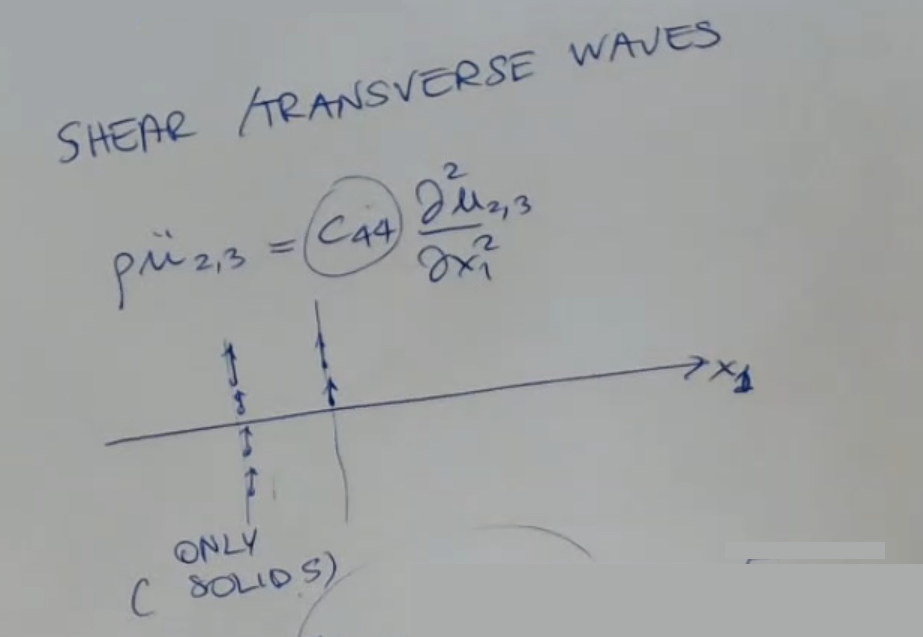 SHEAR /TRANSVERSE WAVES
ρü₂,₃ = C₄₄ ∂²u₂,₃/∂x₁²
x₁
ONLY
( SOLIDS)